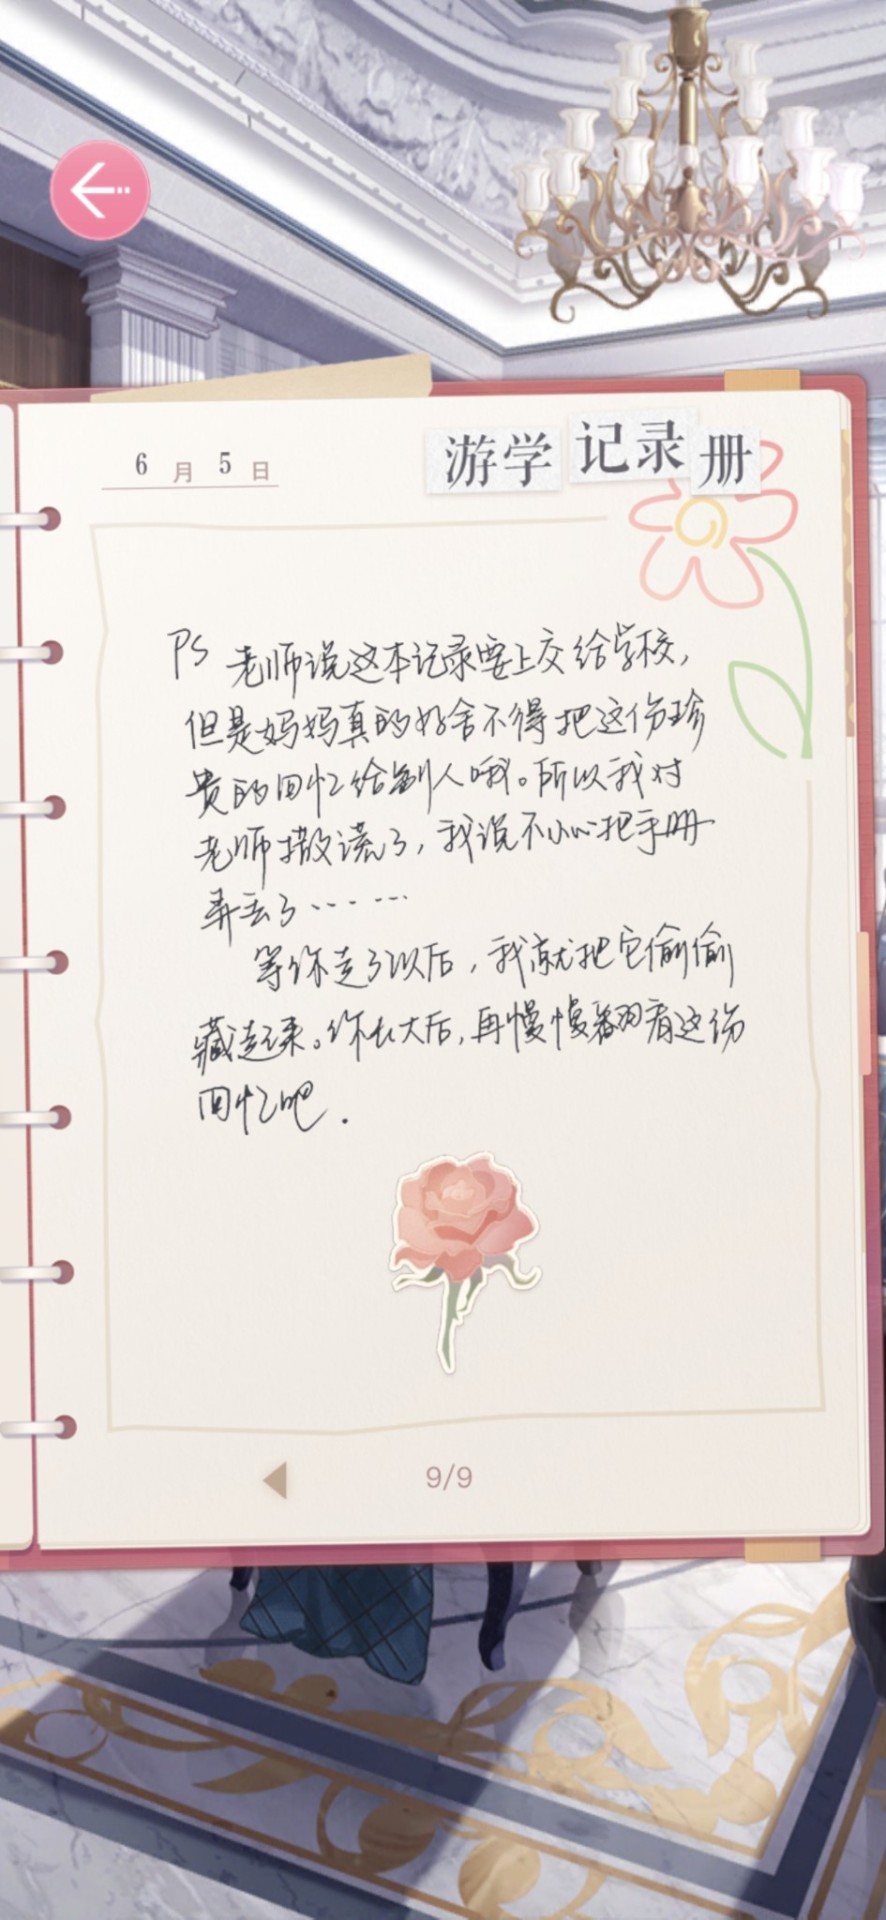 6月5日
游学记录册
PS 老师说这本记录要上交给学校，
但是妈妈真的好舍不得把这份珍
贵的回忆给别人哦。所以我对
老师撒谎了，我说不小心把手册
弄丢了……
等你走了以后，我就把它偷偷
藏起来。你长大后，再慢慢翻看这份
回忆吧.
9/9